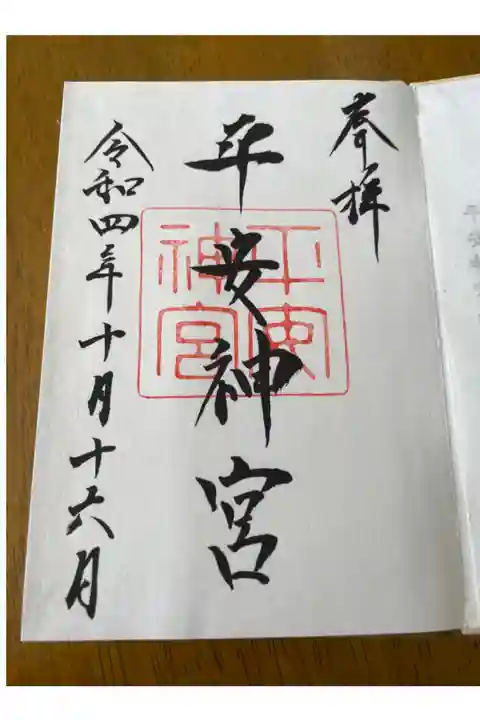 奉拝
平安神宮
平安
神宮
令和四年十月十六月